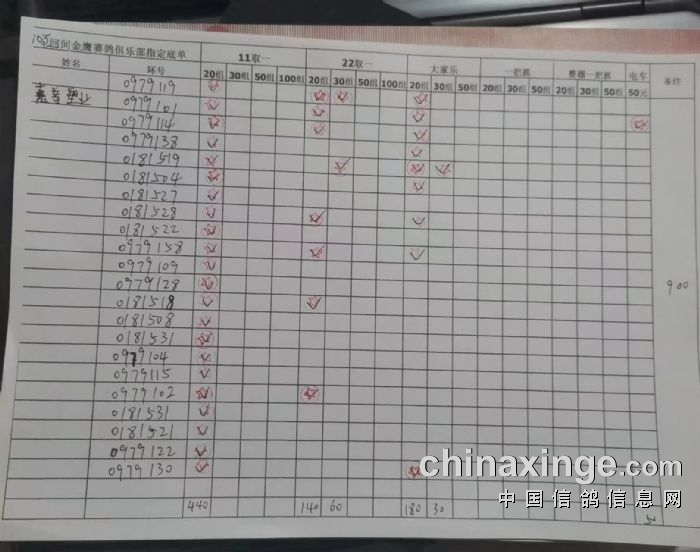 河间金鹰赛鸽俱乐部指定底单
姓名 环号 11取一 22取一 大家乐 一把抓 整棚一把抓 电车 备注
20组 30组 50组 100组 20组 30组 50组 100组 20组 30组 50组 20组 30组 50组 20组 30组 50组 50元
0979119
0979101
0979114
0979138
0181519
0181504
0181527
0181528
0181522
0979158
0979109
0979128
0181518
0181508
0181531
0979104
0979115
0979102
0181531
0181521
0979122
0979130
900
440 140 60 180 30
chinaxinge.com
中国信鸽信息网